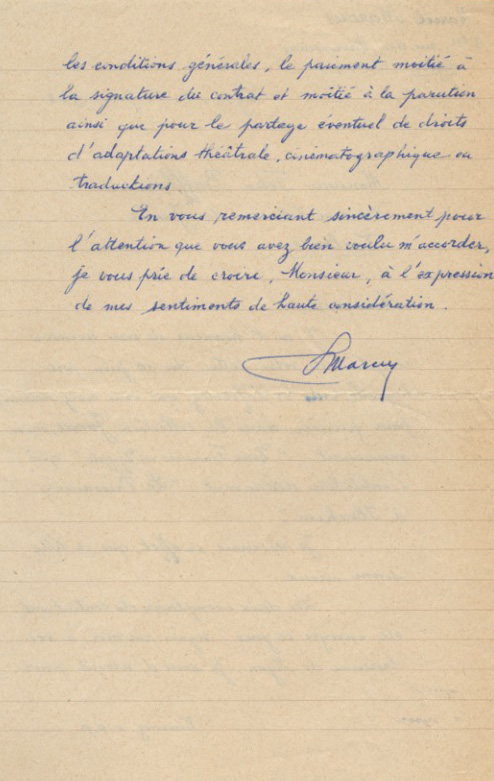 les conditions générales, le paiement moitié à
la signature du contrat et moitié à la parution
ainsi que pour le partage éventuel de droits
d'adaptations théâtrale, cinématographique ou
traductions.
En vous remerciant sincèrement pour
l'attention que vous avez bien voulu m'accorder,
je vous prie de croire, Monsieur, à l'expression
de mes sentiments de haute considération.